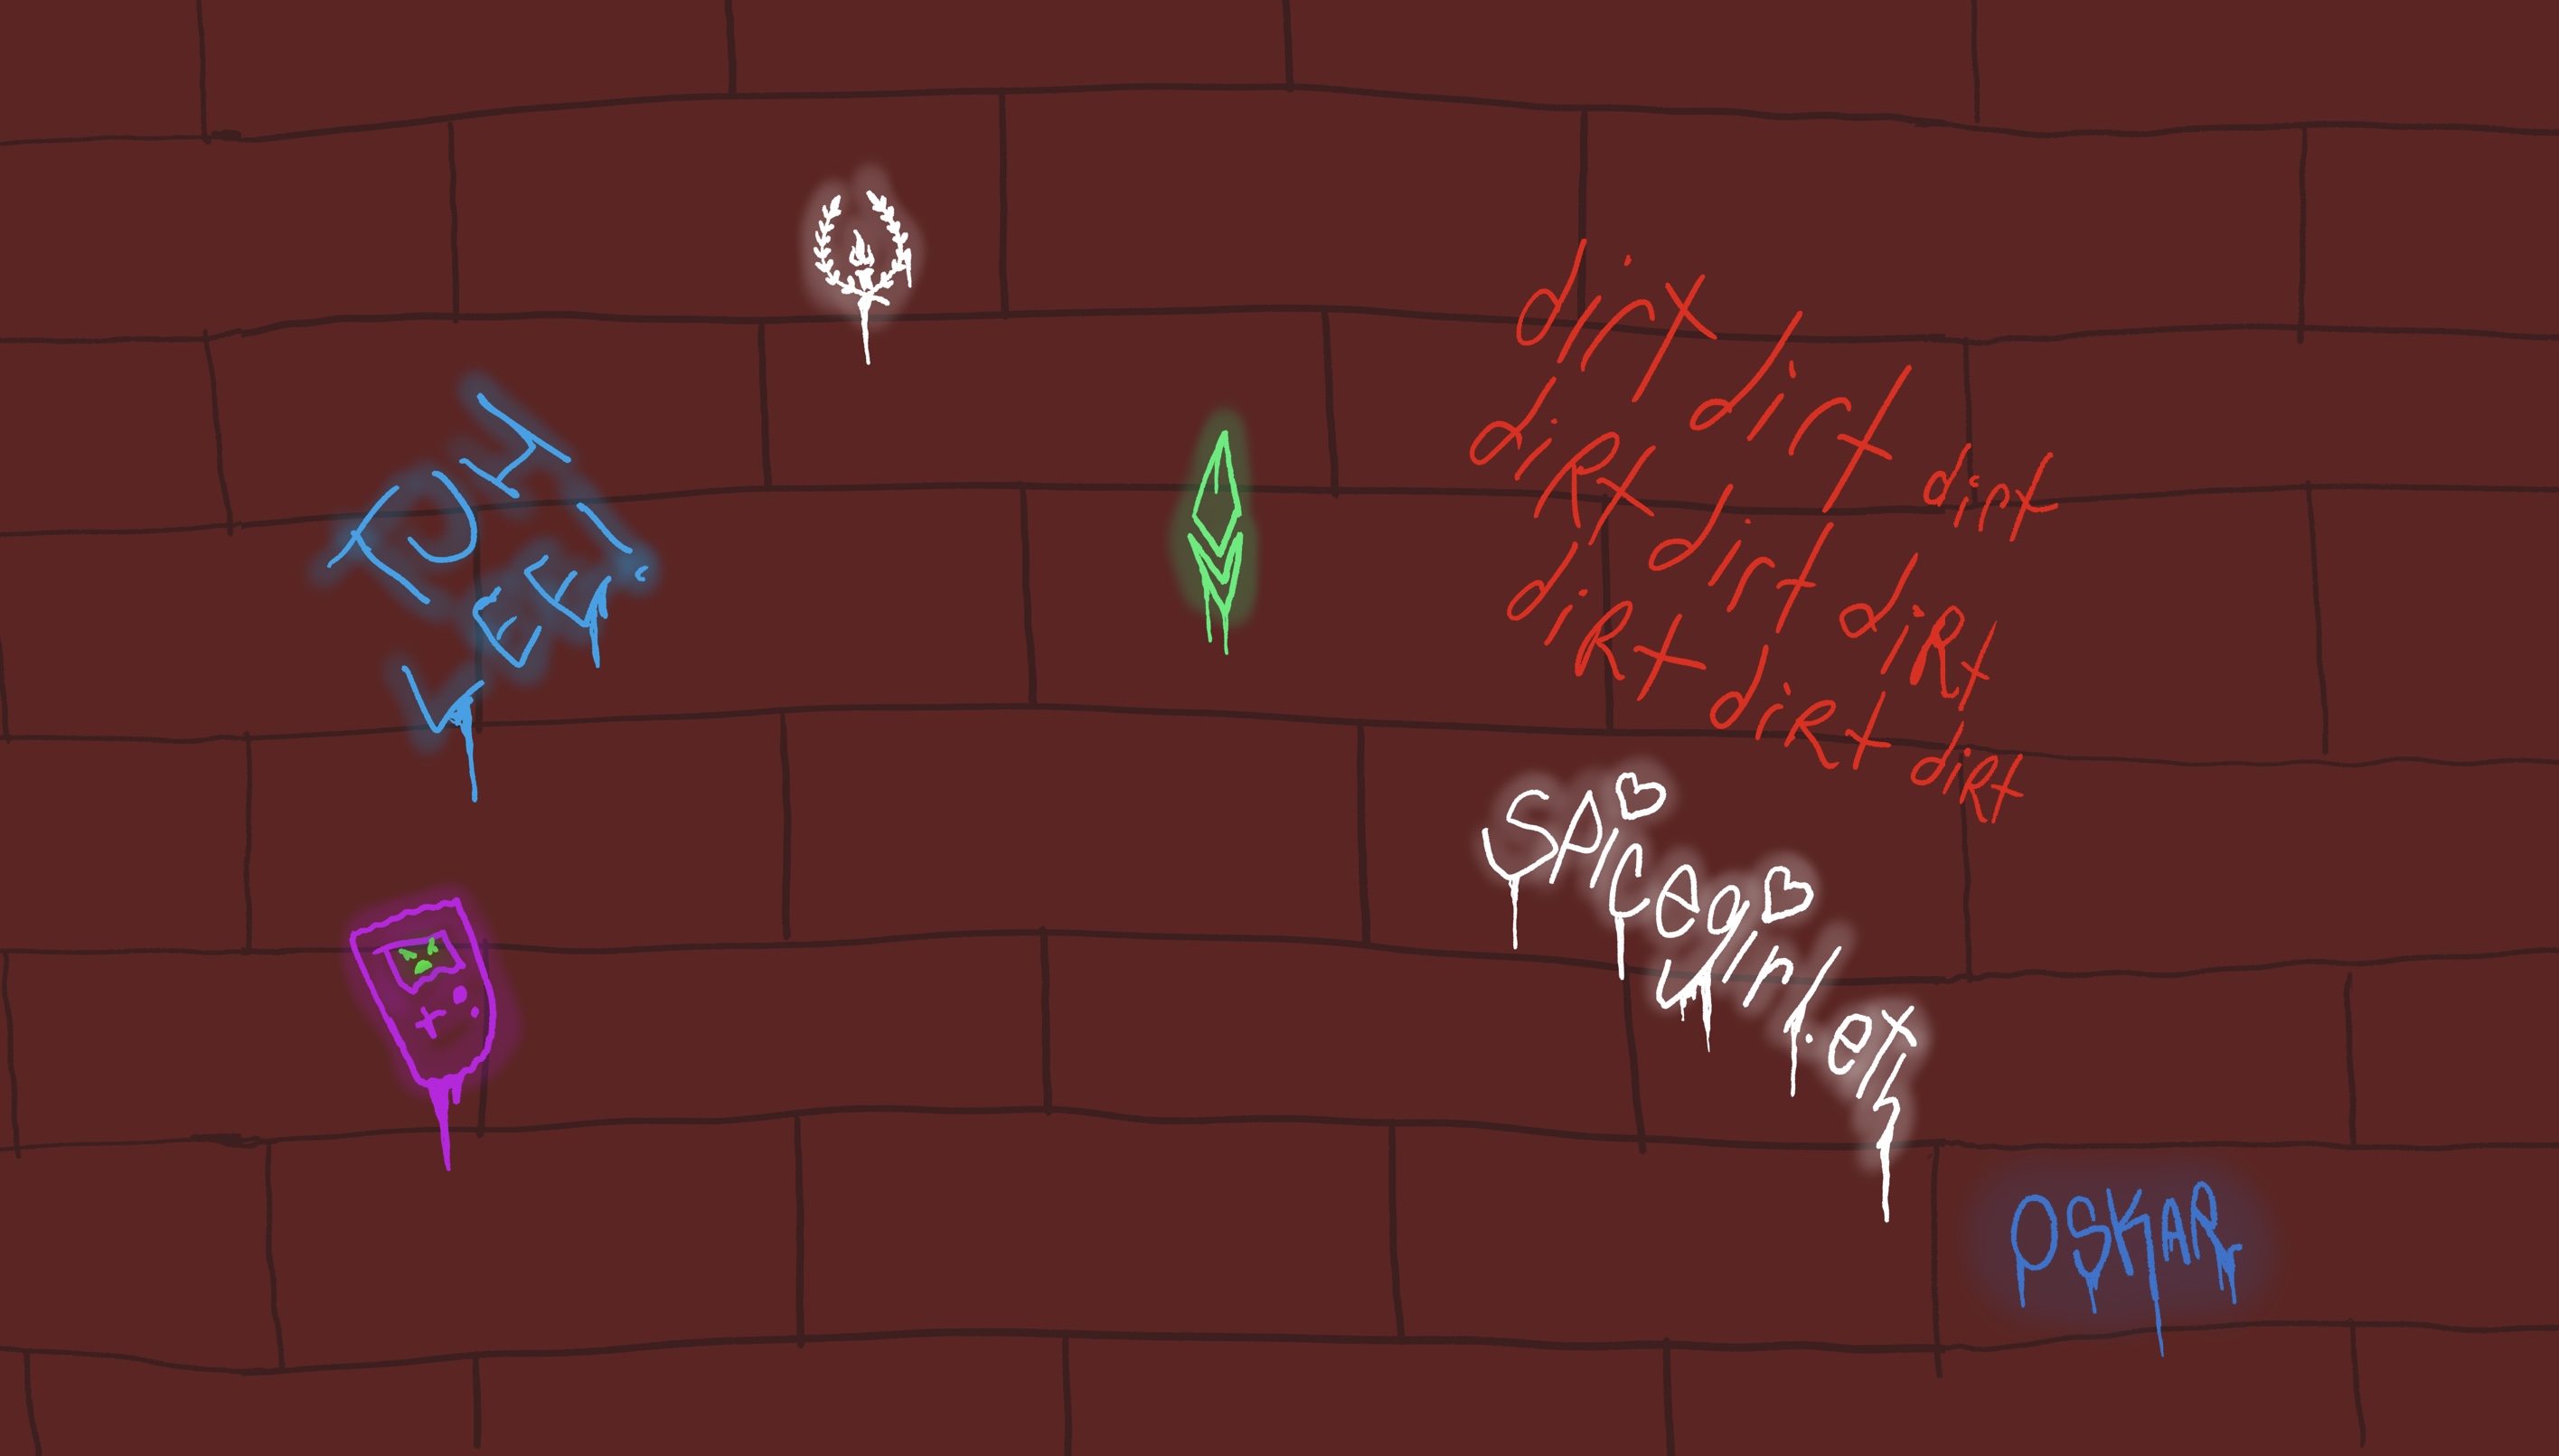 LEE
dirt dirt dirt
diRt dirt diRt
diRt diRt diRt
SPicegirl.eth
OSKAR